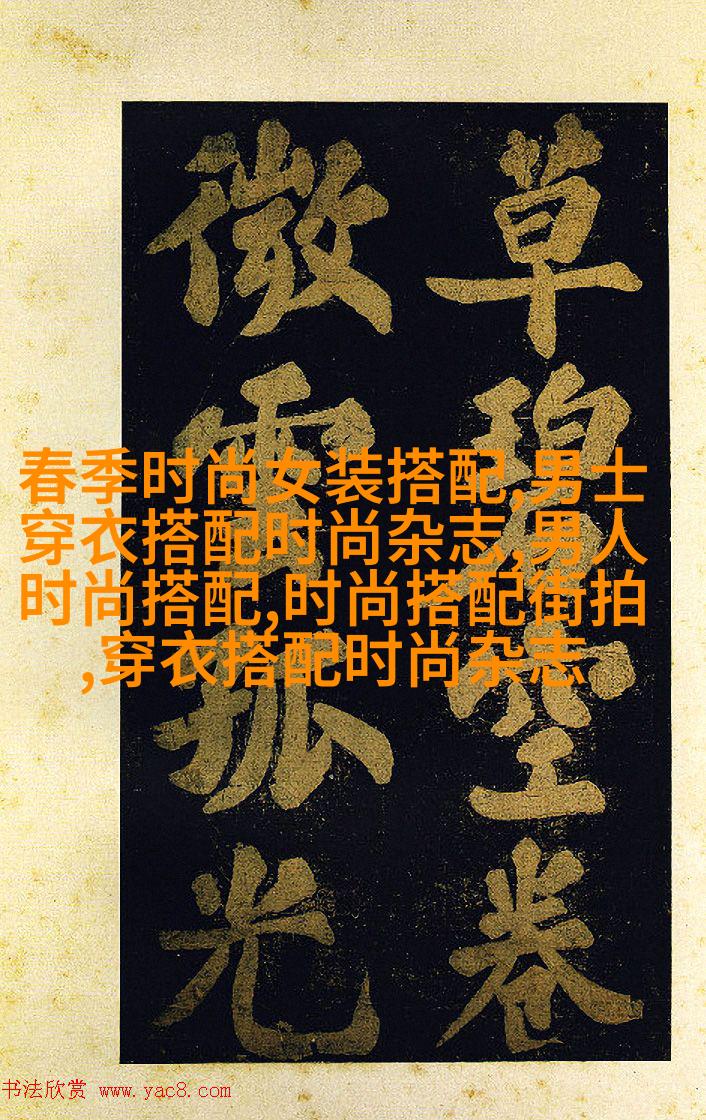 草碧空卷
微雲孤光
春季时尚女装搭配,男士
穿衣搭配时尚杂志,男人
时尚搭配,时尚搭配街拍
,穿衣搭配时尚杂志
书法欣赏 www.yac8.com